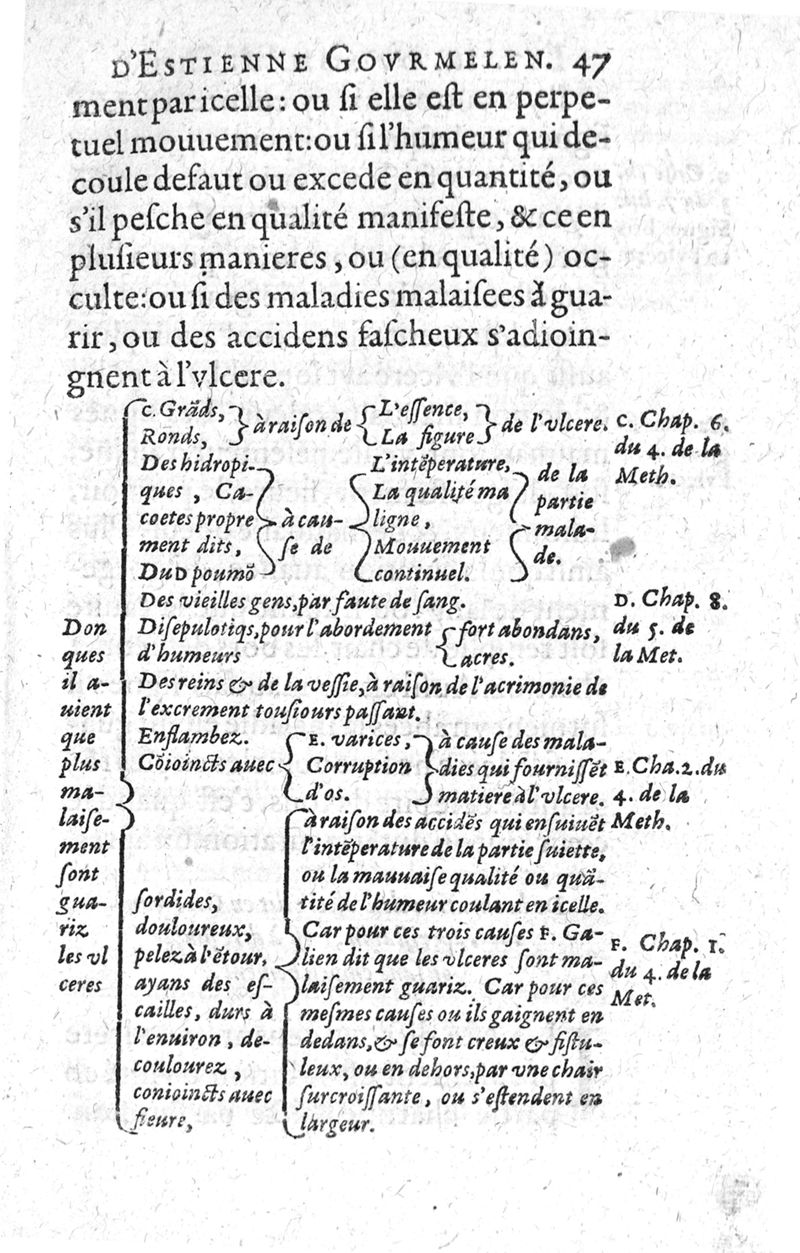 D'ESTIENNE GOVRMELEN. 47
ment par icelle: ou ſi elle eſt en perpe-
tuel mouuement: ou ſi l'humeur qui de-
coule defaut ou excede en quantité, ou
s'il peſche en qualité manifeſte, & ce en
pluſieurs manieres, ou (en qualité) oc-
culte: ou ſi des maladies malaiſees à gua-
rir, ou des accidens faſcheux s'adioin-
gnent à l'vlcere.
Don
ques
il a-
uient
que
plus
ma-
laiſe-
ment
ſont
gua-
riz
les vl
ceres
C. Grãds,
Ronds,
à raiſon de
L'eſſence,
La figure
de l'vlcere.
C. Chap. 6.
du 4. de la
Meth.
Des hidropi-
ques, Ca-
coetes propre
ment dits,
Du D poumõ
à cau-
ſe de
L'intẽperature,
La qualité ma
ligne,
Mouuement
continuel.
de la
partie
mala-
de.
Des vieilles gens, par faute de ſang.
D. Chap. 8.
du 5. de
la Met.
Diſepulotiqs, pour l'abordement
d'humeurs
fort abondans,
acres.
Des reins & de la veſſie, à raiſon de l'acrimonie de
l'excrement touſiours paſſant.
Enflambez.
Cõioincts auec
E. varices,
Corruption
d'os.
à cauſe des mala-
dies qui fourniſſẽt
matiere à l'vlcere.
E. Cha. 2. du
4. de la
Meth.
ſordides,
douloureux,
pelez à l'ẽtour,
ayans des eſ-
cailles, durs à
l'enuiron, de-
coulourez,
conioincts auec
fieure,
à raiſon des accidẽs qui enſuiuẽt
l'intẽperature de la partie ſuiette,
ou la mauuaiſe qualité ou quã-
tité de l'humeur coulant en icelle.
Car pour ces trois cauſes F. Ga-
lien dit que les vlceres ſont ma-
laiſement guariz. Car pour ces
meſmes cauſes ou ils gaignent en
dedans, & ſe font creux & fiſtu-
leux, ou en dehors, par vne chair
ſurcroiſſante, ou s'eſtendent en
largeur.
F. Chap. 1.
du 4. de la
Met.